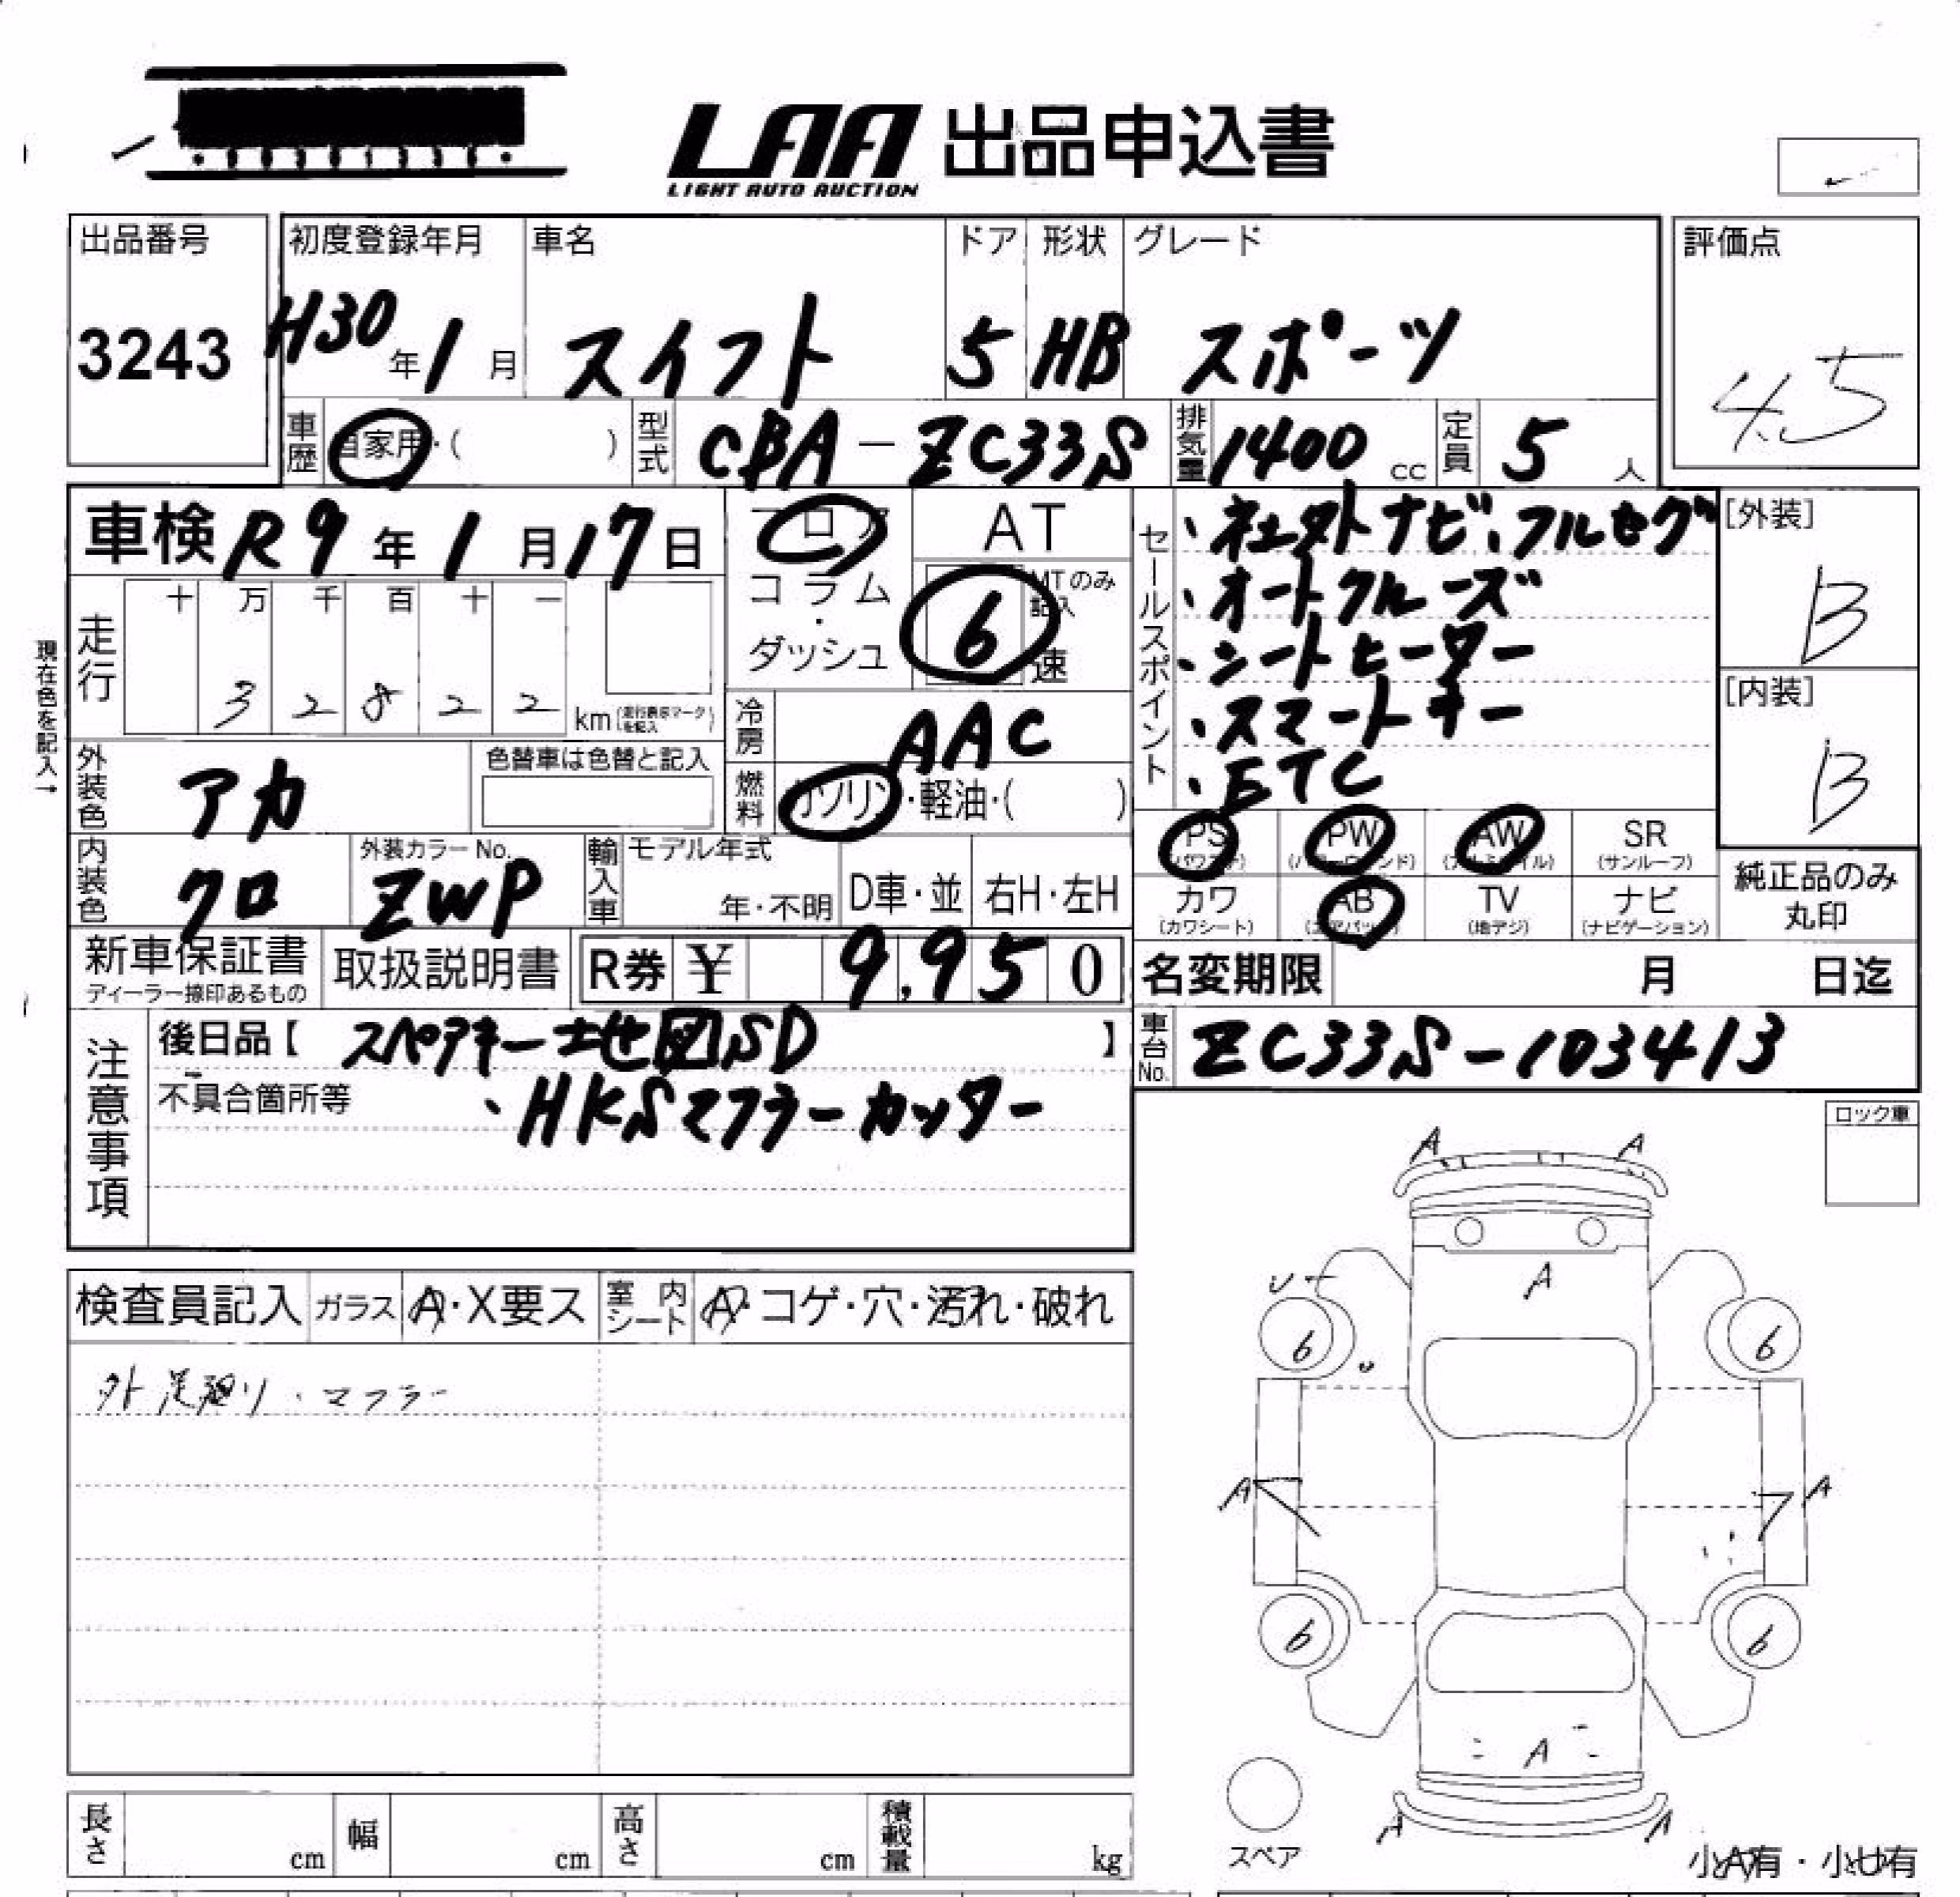 LAA 出品申込書
LIGHT AUTO AUCTION
出品番号
3243
初度登録年月
H30年1月
車名
スイフト
ドア
5
形状
HB
グレード
スポーツ
評価点
4.5
車歴 自家用・( )
型式 CBA-ZC33S
排気量 1400 cc
定員 5 人
車検 R9年1月17日
フロア
コラム・ダッシュ
AT
MTのみ記入
6速
セールスポイント
・社外ナビ、フルセグ
・オートクルーズ
・シートヒーター
・スマートキー
・ETC
[外装]
B
[内装]
B
現在色を記入→
走行
十 万 千 百 十 一
3 2 8 2 2 km (走行表示マークを記入)
冷房 AAC
外装色 アカ
色替車は色替と記入
燃料 ガソリン・軽油・( )
PS (パワステ)
PW (パワーウィンド)
AW (アルミホイル)
SR (サンルーフ)
カワ (カワシート)
AB (エアバッグ)
TV (地デジ)
ナビ (ナビゲーション)
純正品のみ
丸印
内装色 クロ
外装カラーNo.
ZWP
輸入車
モデル年式
年・不明
D車・並
右H・左H
新車保証書
ディーラー捺印あるもの
取扱説明書
R券 ¥ 9,950
名変期限 月 日迄
注意事項
後日品【 スペアキー 地図SD 】
不具合箇所等 、HKSマフラーカッター
車台No. ZC33S-103413
ロック車
検査員記入 ガラス A・X要ス 室内シート A・コゲ・穴・汚れ・破れ
外足廻り・マフラー
A A
A
6 6
A A
6 6
A
A A
スペア
小A有・小U有
長さ cm
幅 cm
高さ cm
積載量 kg